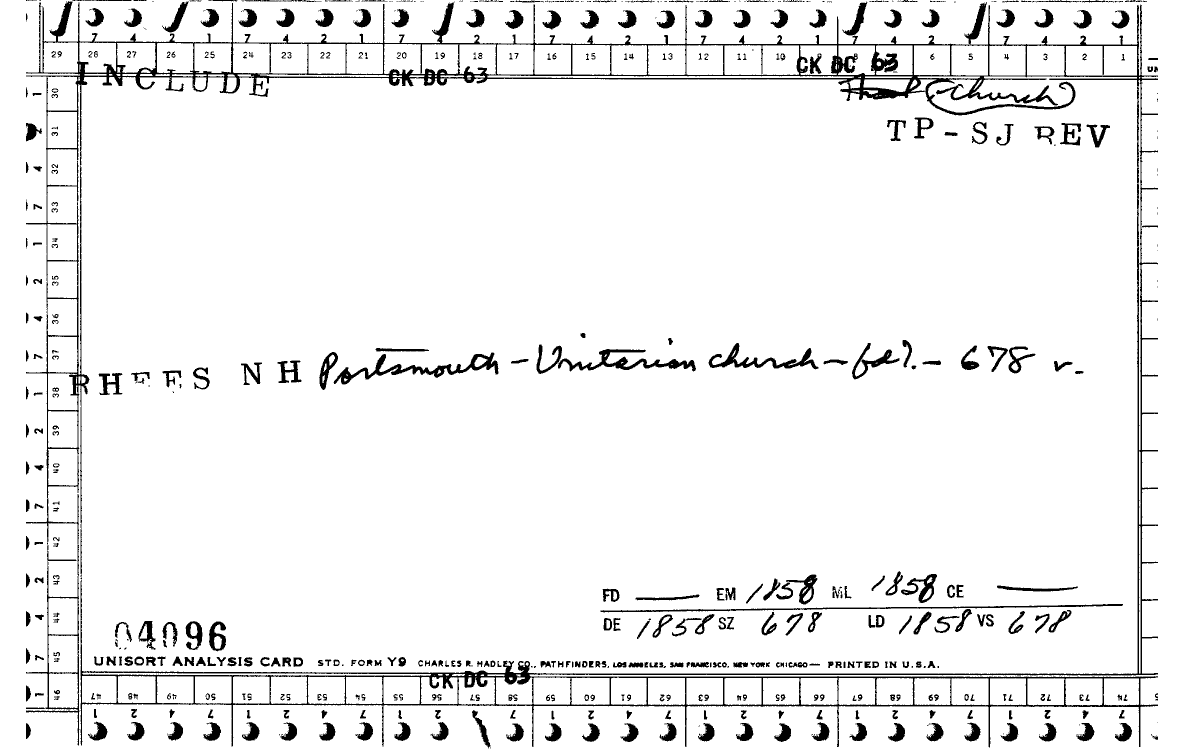 7 4 2 1 7 4 2 1 7 4 2 1 7 4 2 1 7 4 2 1 7 4 2 1 7 4 2 1
29 28 27 26 25 24 23 22 21 20 19 18 17 16 15 14 13 12 11 10 9 8 7 6 5 4 3 2 1
INCLUDE CK DC 63 CK DC 63
Church
TP-SJ REV
1 30
2 31
4 32
7 33
1 34
2 35
4 36
7 37
RHEES NH Portsmouth - Unitarian church - fd?. - 678 v.
1 38
2 39
4 40
7 41
1 42
2 43
FD — EM 1858 ML 1858 CE —
4 44
DE 1858 SZ 678 LD 1858 VS 678
04096
7 45
UNISORT ANALYSIS CARD STD. FORM Y9 CHARLES R. HADLEY CO., PATHFINDERS, LOS ANGELES, SAN FRANCISCO, NEW YORK CHICAGO — PRINTED IN U.S.A.
CK DC 63
1 46
47 48 49 50 51 52 53 54 55 56 57 58 59 60 61 62 63 64 65 66 67 68 69 70 71 72 73 74
1 2 4 7 1 2 4 7 1 2 4 7 1 2 4 7 1 2 4 7 1 2 4 7 1 2 4 7